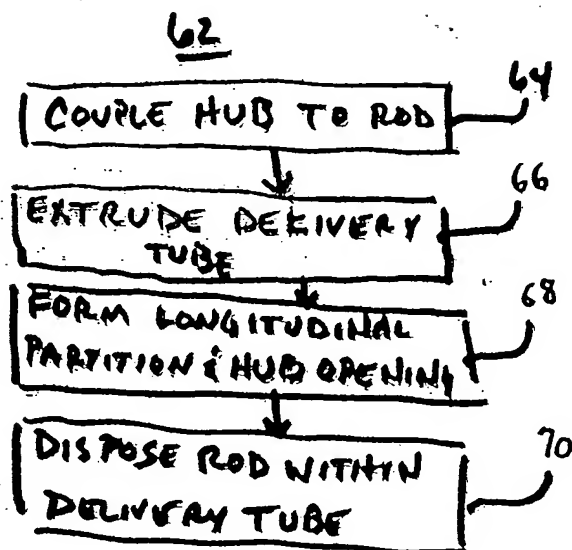 62
COUPLE HUB TO ROD
64
EXTRUDE DELIVERY
TUBE
66
FORM LONGITUDINAL
PARTITION & HUB OPENING
68
DISPOSE ROD WITHIN
DELIVERY TUBE
70